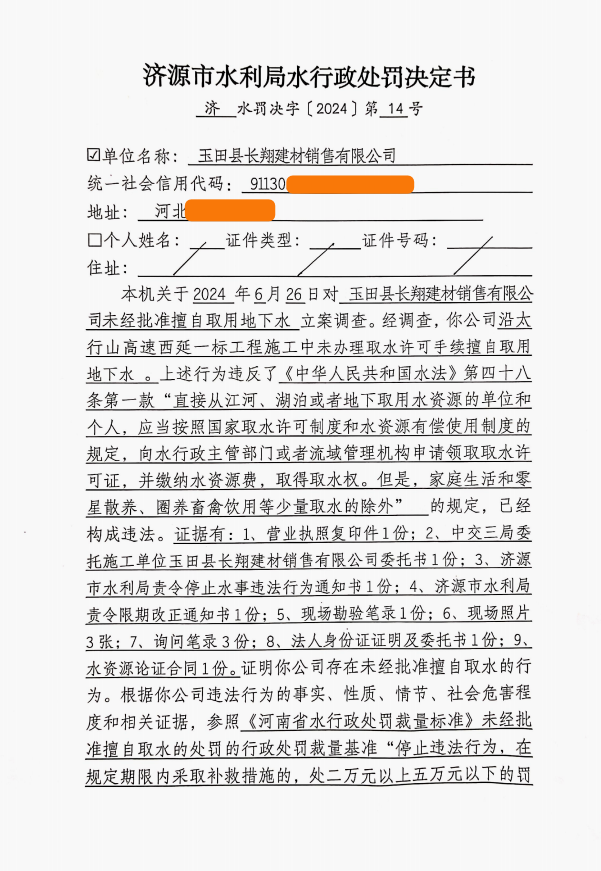 济源市水利局水行政处罚决定书
济 水罚决字〔2024〕第 14 号
☑单位名称： 玉田县长翔建材销售有限公司
统一社会信用代码： 91130
地址： 河北
□个人姓名： 证件类型： 证件号码：
住址：
本机关于 2024 年 6 月 26 日对 玉田县长翔建材销售有限公
司未经批准擅自取用地下水 立案调查。经调查，你公司沿太
行山高速西延一标工程施工中未办理取水许可手续擅自取用
地下水 。上述行为违反了《中华人民共和国水法》第四十八
条第一款“直接从江河、湖泊或者地下取用水资源的单位和
个人，应当按照国家取水许可制度和水资源有偿使用制度的
规定，向水行政主管部门或者流域管理机构申请领取取水许
可证，并缴纳水资源费，取得取水权。但是，家庭生活和零
星散养、圈养畜禽饮用等少量取水的除外” 的规定，已经
构成违法。证据有：1、营业执照复印件1份；2、中交三局委
托施工单位玉田县长翔建材销售有限公司委托书1份；3、济源
市水利局责令停止水事违法行为通知书1份；4、济源市水利局
责令限期改正通知书1份；5、现场勘验笔录1份；6、现场照片
3张；7、询问笔录3份；8、法人身份证证明及委托书1份；9、
水资源论证合同1份。证明你公司存在未经批准擅自取水的行
为。根据你公司违法行为的事实、性质、情节、社会危害程
度和相关证据，参照《河南省水行政处罚裁量标准》未经批
准擅自取水的处罚的行政处罚裁量基准“停止违法行为，在
规定期限内采取补救措施的，处二万元以上五万元以下的罚